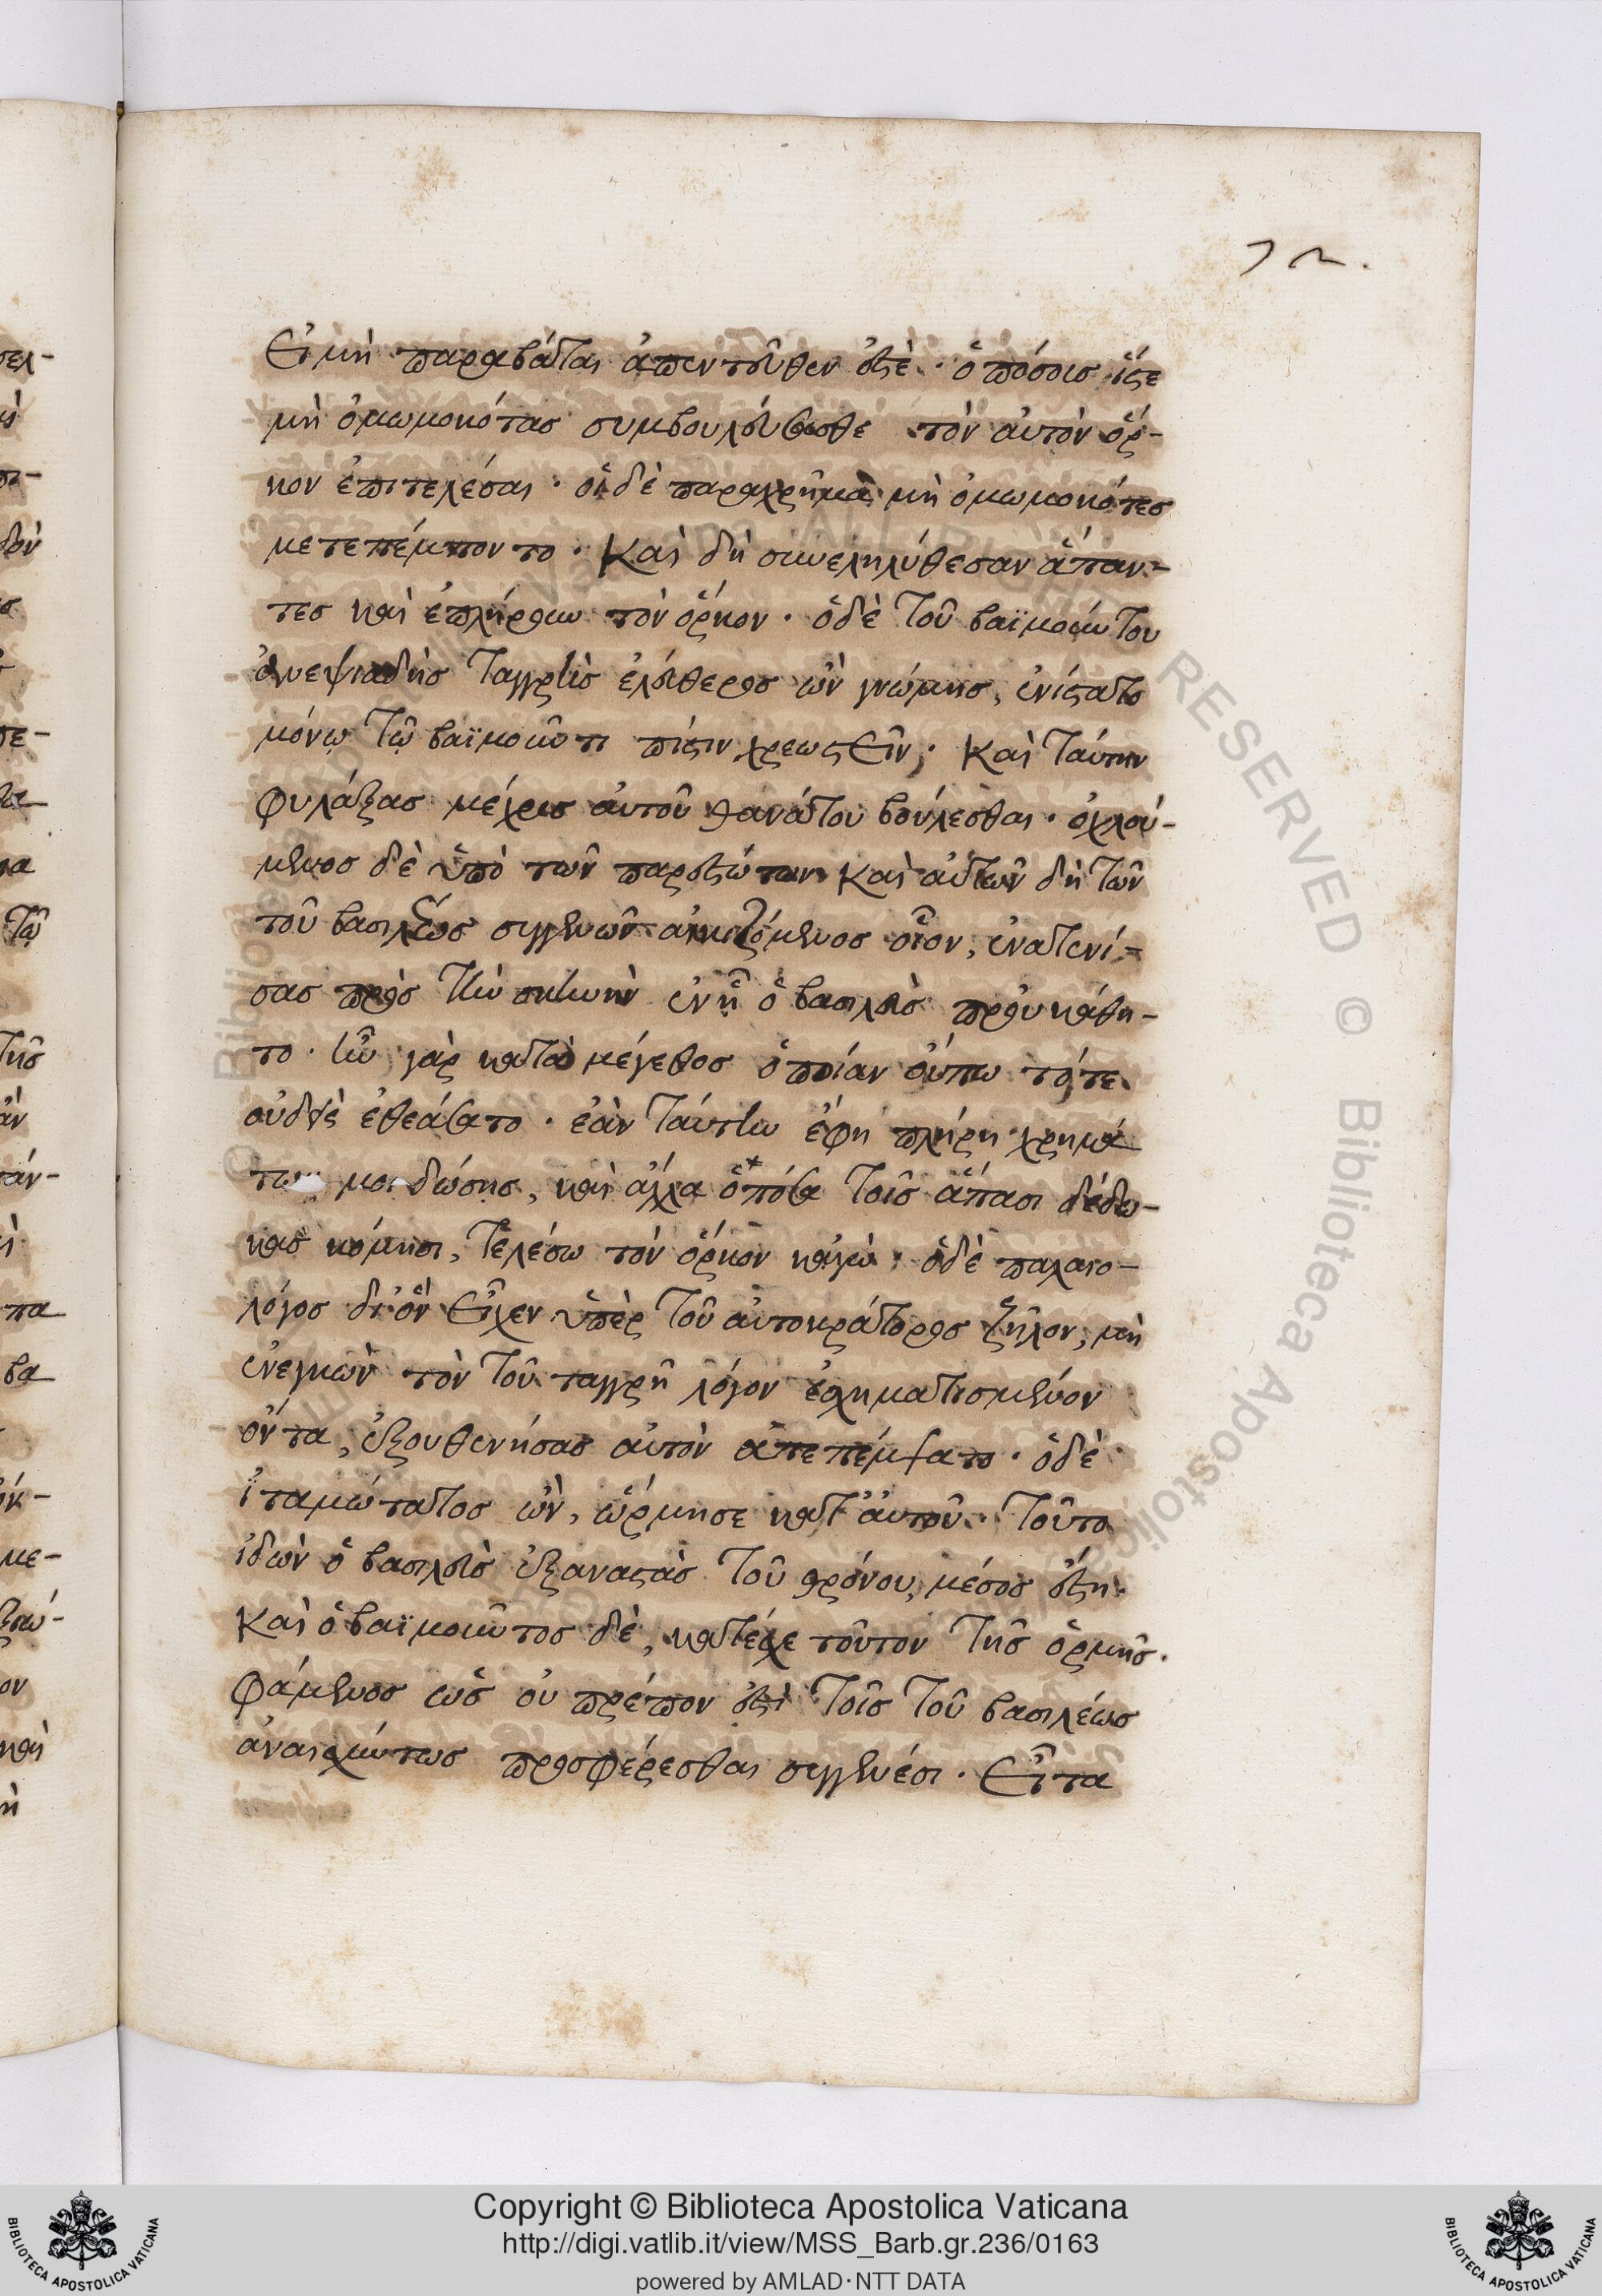 72.
Εἰ μὴ παραβάται ἀπεντεῦθεν ἐστὲ. ὁπόσοις ἴστε
μὴ ὀμωμοκότας συμβουλεύσασθε τὸν αὐτὸν ὅρ-
κον ἐπιτελέσαι. οἱ δὲ παραχρῆμα μὴ ὀμωμοκότες
μετεπέμποντο. Καὶ δὴ συνεληλύθεσαν ἅπαν-
τες καὶ ἐπλήρουν τὸν ὅρκον. ὁ δὲ τοῦ βαϊμούντου
ἀνεψιαδὴς ταγγρὲ ἐλεύθερος ὢν γνώμης, ἐνίστατο
μόνῳ τῷ βαϊμούντι πίστιν χρεωστεῖν, Καὶ ταύτην
φυλάξας μέχρις αὐτοῦ θανάτου βούλεσθαι. ὀχλού-
μενος δὲ ὑπὸ τῶν παρεστώτων Καὶ αὐτῶν δὴ τῶν
τοῦ βασιλέως συγγενῶν ἀκκιζόμενος οἷον, ἐνατενί-
σας πρὸς τὴν σκηνὴν ἐν ᾗ ὁ βασιλεὺς προὐκάθη-
το. ἦν γὰρ κατὰ μέγεθος ὁποίαν οὔπω τότε
οὐδεὶς ἐθεάσατο. ἐὰν ταύτην ἔφη πλήρη χρημά
των μοι δώσῃς, καὶ ἄλλα ὁπόσα τοῖς ἅπασι δέδω-
κας κόμησι, τελέσω τὸν ὅρκον κᾀγὼ. ὁ δὲ παλαιο-
λόγος δι' ὃν εἶχεν ὑπὲρ τοῦ αὐτοκράτορος ζῆλον, μὴ
ἐνεγκὼν τὸν τοῦ ταγγρῆ λόγον ἐσχηματισμένον
ὄντα, ἐξουθενήσας αὐτὸν ἀπεπέμψατο. ὁ δὲ
ἰταμώτατος ὢν, ὥρμησε κατ' αὐτοῦ. Τοῦτο
ἰδὼν ὁ βασιλεὺς ἐξαναστὰς τοῦ θρόνου, μέσος ἔστη.
Καὶ ὁ βαϊμοῦντος δὲ, κατέσχε τοῦτον τῆς ὁρμῆς.
Φάμενος ὡς οὐ πρέπον ἐστὶ τοῖς τοῦ βασιλέως
ἀναισχύντως προσφέρεσθαι συγγενέσι. Εἶτα
Copyright © Biblioteca Apostolica Vaticana
http://digi.vatlib.it/view/MSS_Barb.gr.236/0163
powered by AMLAD·NTT DATA